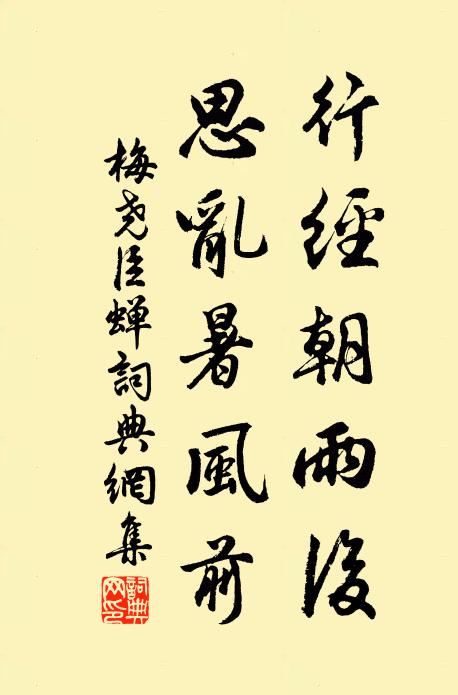 行經朝雨後
思亂暑風前
梅尧臣蝉詞典網集
詞典网印